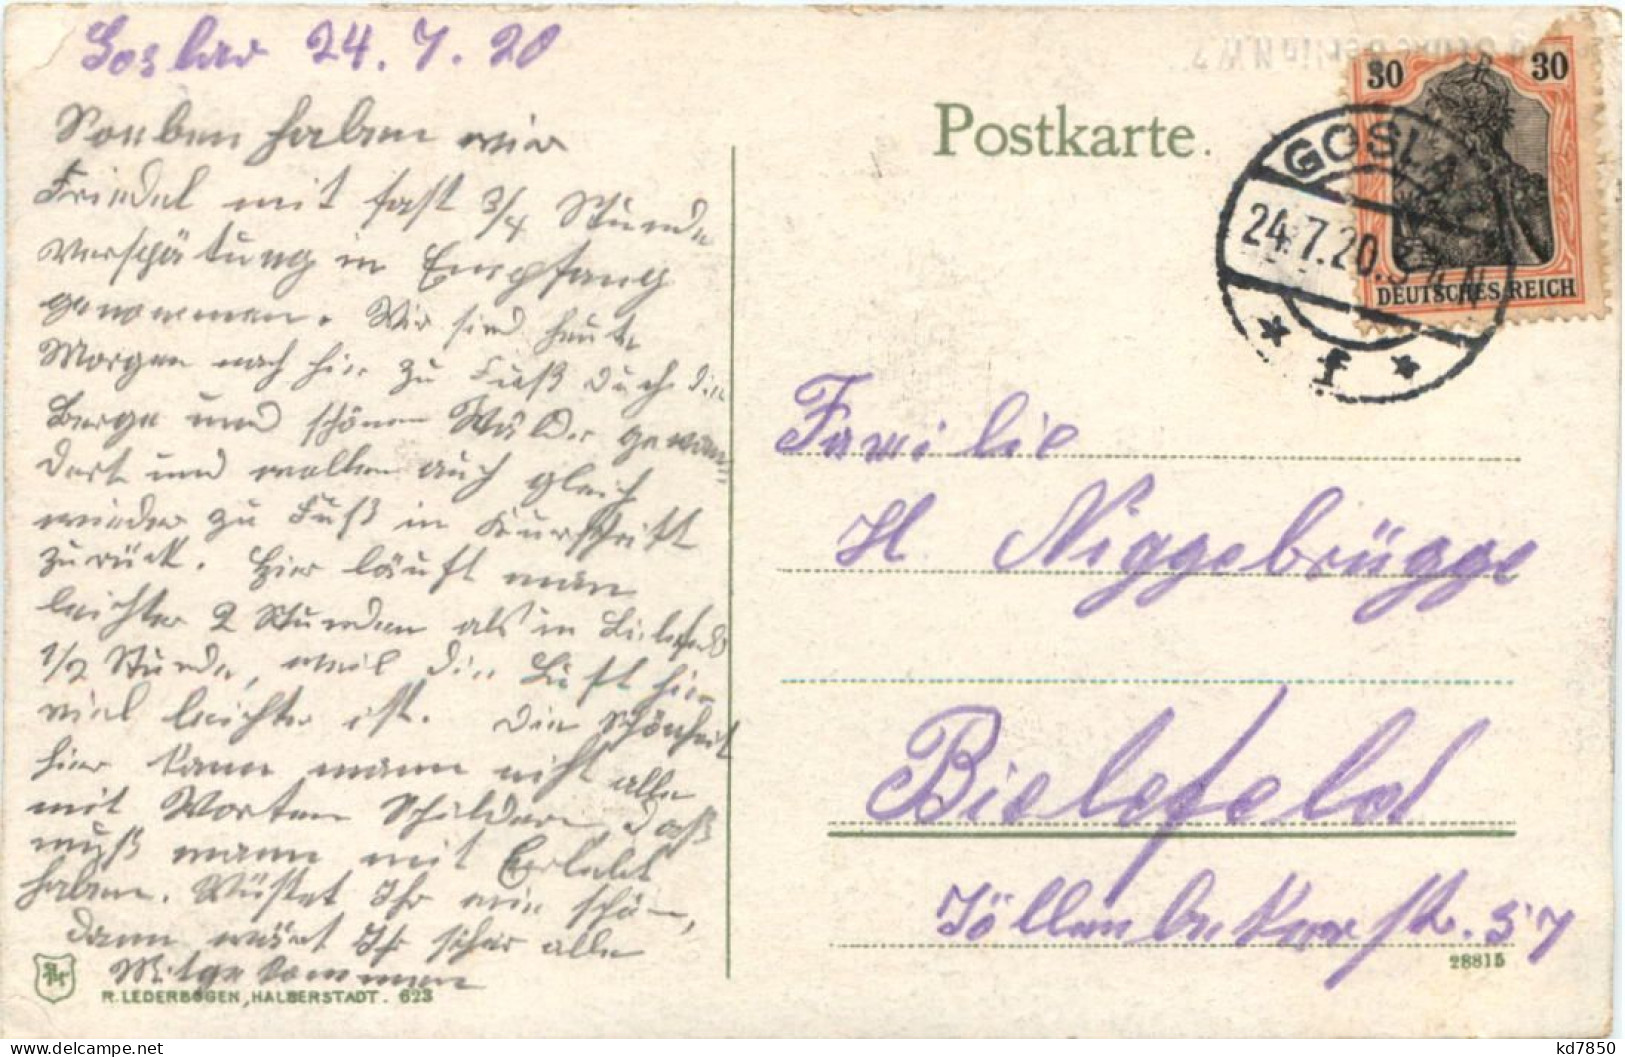 Goslar 24.7.20
Soeben haben wir
Friedel mit fast 3/4 Stunde
Verspätung in Empfang
genommen. Wir sind heute
Morgen nach hier zu Fuß durch die
Berge und schönen Wälder gewan-
dert und wollen auch gleich
wieder zu Fuß in Kurschritt
zurück. Hier läuft man
leichter 2 Stunden als in Bielefeld
1/2 Stunde, weil die Luft hier
viel leichter ist. Die Schönheit
hier kann mann nicht alle
mit Worten Schildern, daß
muß mann mit Erlebt
haben. Wüstet Ihr wie schön,
dann wäret Ihr sicher alle
Mitgekommen
R. LEDERBOGEN, HALBERSTADT. 623
Postkarte.
30 30
DEUTSCHES REICH
GOSLAR
24.7.20.
* f *
Familie
H Niggebrügge
Bielefeld
Töllenbeckerstr. 57
28815
kd7850